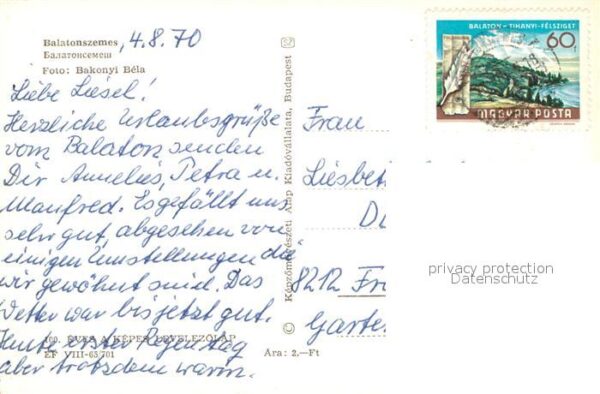 Balatonszemes
Балатонсемеш
Foto: Bakonyi Béla
4.8.70
Liebe Liesel!
Herzliche Urlaubsgrüße
vom Balaton senden
Dir Annelies, Petra u.
Manfred. Es gefällt uns
sehr gut, abgesehen von
einigen Umstellungen die
wir gewöhnt sind. Das
Wetter war bis jetzt gut.
Heute erster Regentag
aber trotzdem warm.
100 ÉVES A KÉPES LEVELEZŐLAP
EF VIII-65/701
Ára: 2.–Ft
© Képzőművészeti Alap Kiadóvállalata, Budapest
BALATON - TIHANYI-FÉLSZIGET
60f
MAGYAR POSTA
Frau
Liesbet
8212 Fr
Garte
privacy protection
Datenschutz